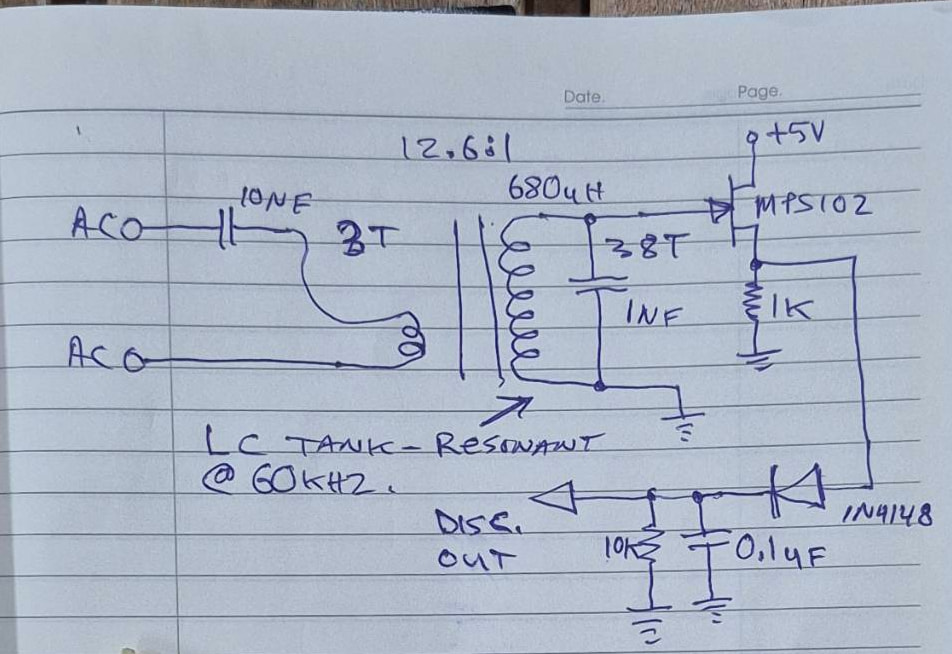 Date.
Page.
12.6:1
+5V
680uH
10NF
MPS102
ACO
3T
38T
1NF
1K
ACO
LC TANK - RESONANT
@ 60KHZ.
1N4148
DISC.
OUT
10K
0.1uF